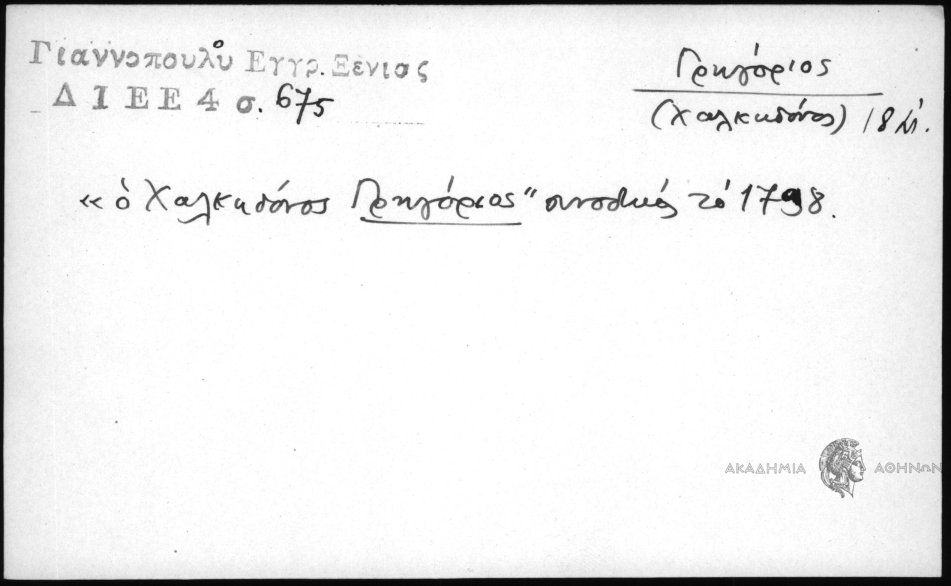 Γιαννοπουλου Εγγρ. Ξενιας
Δ Ι Ε Ε 4 σ. 675
Γρηγόριος
(Χαλκηδόνος) 18 αἰ.
« ὁ Χαλκηδόνος Γρηγόριος" συνοδικός τό 1798.
ΑΚΑΔΗΜΙΑ ΑΘΗΝΩΝ